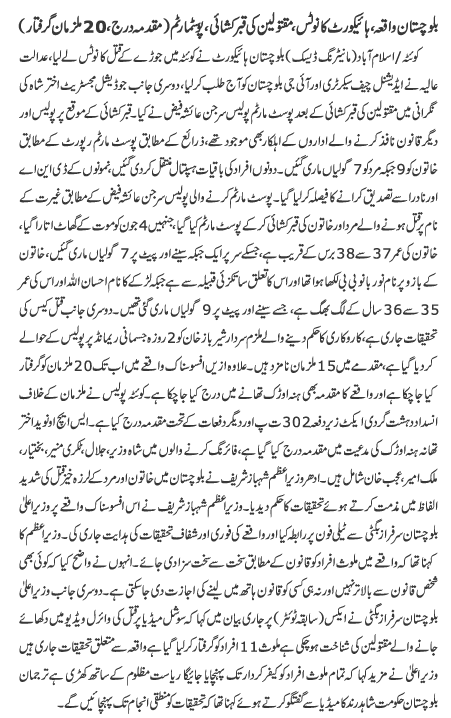 بلوچستان واقعہ، ہائیکورٹ کا نوٹس، مقتولین کی قبر کشائی، پوسٹمارٹم (مقدمہ درج، 20 ملزمان گرفتار)
کوئٹہ / اسلام آباد (مانیٹرنگ ڈیسک) بلوچستان ہائیکورٹ نے کوئٹہ میں جوڑے کے قتل کا نوٹس لے لیا، عدالت
عالیہ نے ایڈیشنل چیف سیکرٹری اور آئی جی بلوچستان کو آج طلب کر لیا، دوسری جانب جوڈیشل مجسٹریٹ اختر شاہ کی
نگرانی میں مقتولین کی قبر کشائی کے بعد پوسٹ مارٹم پولیس سرجن عائشہ فیض نے کیا۔ قبر کشائی کے موقع پر پولیس اور
دیگر قانون نافذ کرنے والے اداروں کے اہلکار بھی موجود تھے، ذرائع کے مطابق پوسٹ مارٹم رپورٹ کے مطابق
خاتون کو 9 جبکہ مرد کو 7 گولیاں ماری گئیں۔ دونوں افراد کی باقیات ہسپتال منتقل کر دی گئیں، نمونوں کے ڈی این اے
اور نادرا سے تصدیق کرانے کا فیصلہ کر لیا گیا۔ پوسٹ مارٹم کرنے والی پولیس سرجن عائشہ فیض کے مطابق غیرت کے
نام پر قتل ہونے والے مرد اور خاتون کی قبر کشائی کر کے پوسٹ مارٹم کیا گیا، جنہیں 4 جون کو موت کے گھاٹ اتارا گیا،
خاتون کی عمر 37 سے 38 برس کے قریب ہے، جسکے سر پر ایک جبکہ سینے اور پیٹ پر 7 گولیاں ماری گئیں، خاتون
کے بازو پر نام نور بانو بی بی لکھا ہوا تھا اور اس کا تعلق ساتکزئی قبیلہ سے ہے جبکہ لڑکے کا نام احسان اللہ اور اس کی عمر
35 سے 36 سال کے لگ بھگ ہے، جسے سینے اور پیٹ پر 9 گولیاں ماری گئی تھیں۔ دوسری جانب قتل کیس کی
تحقیقات جاری ہے، کاروکاری کا حکم دینے والے ملزم سردار شیر باز خان کو 2 روزہ جسمانی ریمانڈ پر پولیس کے حوالے
کر دیا گیا ہے، مقدمے میں 15 ملزمان نامزد ہیں۔ علاوہ ازیں افسوسناک واقعے میں اب تک 20 ملزمان کو گرفتار
کیا جا چکا ہے اور واقعے کا مقدمہ بھی ہنہ اوڑک تھانے میں درج کیا جا چکا ہے۔ کوئٹہ پولیس نے ملزمان کے خلاف
انسداد دہشت گردی ایکٹ زیر دفعہ 302 ت پ اور دیگر دفعات کے تحت مقدمہ درج کیا ہے۔ ایس ایچ او نوید اختر
تھانہ ہنہ اوڑک کی مدعیت میں مقدمہ درج کیا گیا ہے، فائرنگ کرنے والوں میں شاہ وزیر، جلال، ٹکری منیر، بختیار،
ملک امیر، عجب خان شامل ہیں۔ ادھر وزیراعظم شہباز شریف نے بلوچستان میں خاتون اور مرد کے لرزہ خیز قتل کی شدید
الفاظ میں مذمت کرتے ہوئے تحقیقات کا حکم دیدیا۔ وزیراعظم شہباز شریف نے اس افسوسناک واقعے پر وزیراعلیٰ
بلوچستان سرفراز بگٹی سے ٹیلی فون پر رابطہ کیا اور واقعے کی فوری اور شفاف تحقیقات کی ہدایت جاری کی۔ وزیراعظم کا
کہنا تھا کہ واقعے میں ملوث افراد کو قانون کے مطابق سخت سے سخت سزا دی جائے۔ انہوں نے واضح کیا کہ کوئی بھی
شخص قانون سے بالاتر نہیں اور نہ ہی کسی کو قانون ہاتھ میں لینے کی اجازت دی جا سکتی ہے۔ دوسری جانب وزیراعلیٰ
بلوچستان سرفراز بگٹی نے ایکس (سابقہ ٹوئٹر) پر جاری بیان میں کہا کہ سوشل میڈیا پر قتل کی وائرل ویڈیو میں دکھائے
جانے والے مقتولین کی شناخت ہو چکی ہے ملوث 11 افراد کو گرفتار کر لیا گیا ہے واقعہ سے متعلق تحقیقات جاری ہیں
وزیراعلیٰ نے مزید کہا کہ تمام ملوث افراد کو کیفر کردار تک پہنچایا جائیگا ریاست مظلوم کے ساتھ کھڑی ہے ترجمان
بلوچستان حکومت شاہد رند کا میڈیا سے گفتگو کرتے ہوئے کہنا تھا کہ تحقیقات کو منطقی انجام تک پہنچائیں گے۔